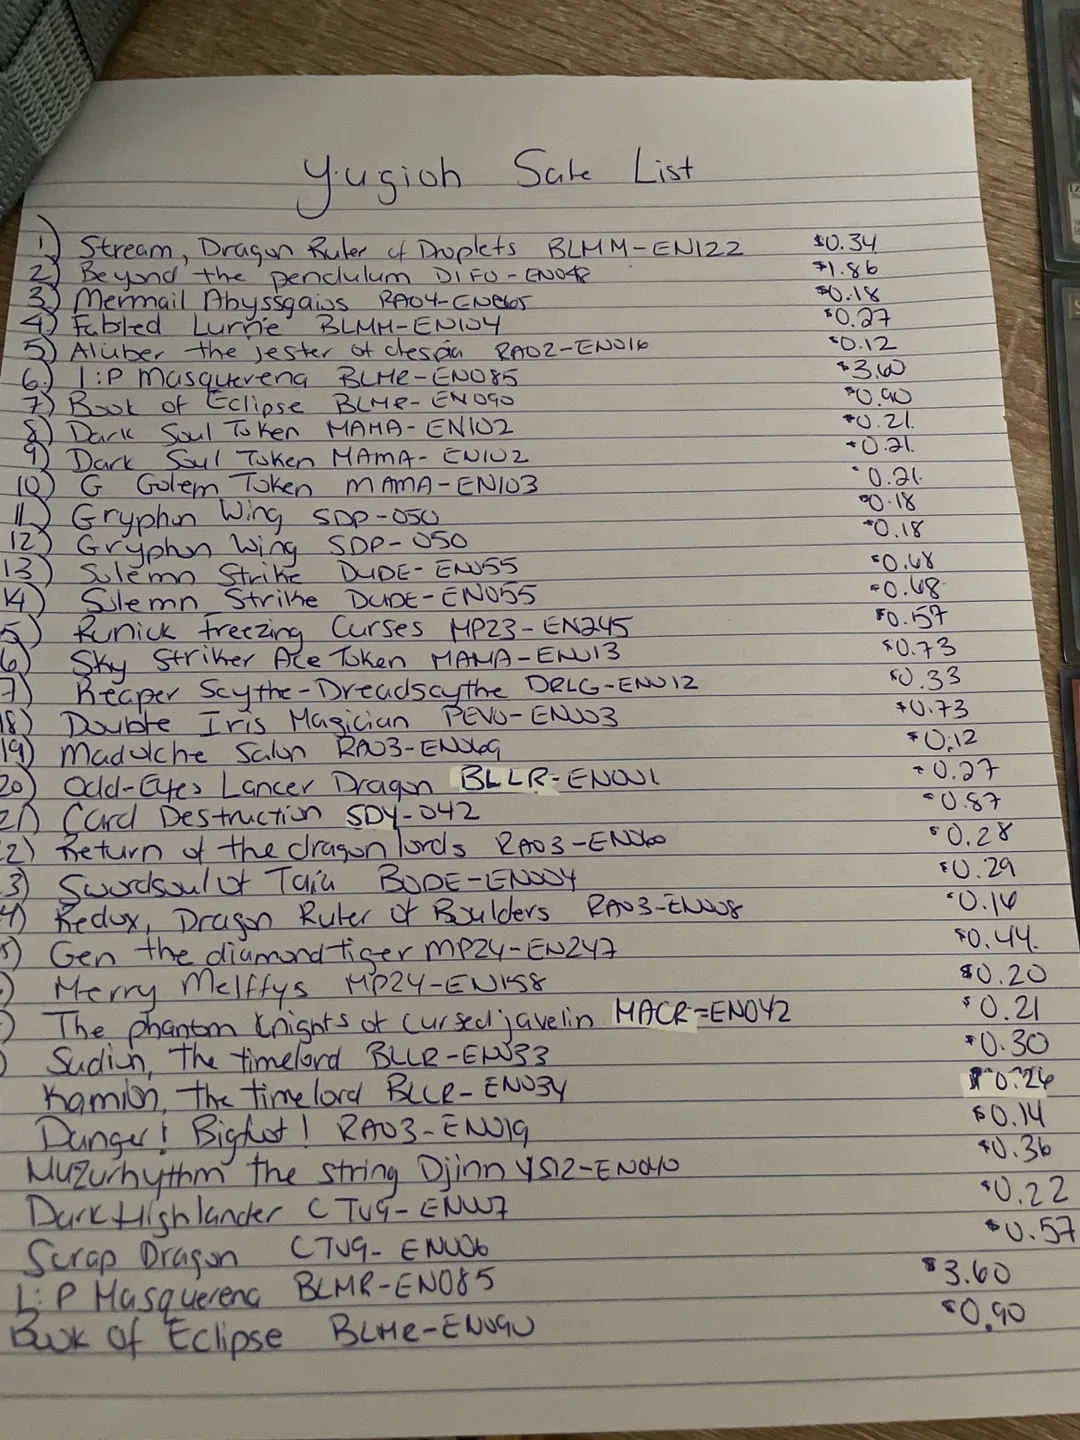 Yugioh Sale List
1) Stream, Dragon Ruler of Droplets BLMM-EN122 $0.34
2) Beyond the pendulum DIFO-EN048 $1.86
3) Mermail Abyssgaios RA04-EN065 $0.18
4) Fabled Lurrie BLMM-EN104 $0.27
5) Aluber the jester of despia RA02-EN016 $0.12
6) I:P Masquerena BLMR-EN085 $3.60
7) Book of Eclipse BLMR-EN090 $0.90
8) Dark Soul Token MAMA-EN102 $0.21
9) Dark Soul Token MAMA-EN102 $0.21
10) G Golem Token MAMA-EN103 $0.21
11) Gryphon Wing SDP-050 $0.18
12) Gryphon Wing SDP-050 $0.18
13) Solemn Strike DUDE-EN055 $0.68
14) Solemn Strike DUDE-EN055 $0.68
5) Runick freezing Curses MP23-EN245 $0.57
6) Sky Striker Ace Token MAMA-EN113 $0.73
7) Reaper Scythe-Dreadscythe DRLG-EN012 $0.33
18) Double Iris Magician PEVO-EN003 $0.73
19) Madolche Salon RA03-EN069 $0.12
20) Odd-Eyes Lancer Dragon BLLR-EN001 $0.27
21) Card Destruction SDY-042 $0.87
2) Return of the dragon lords RA03-EN060 $0.28
3) Swordsoul of Taia BODE-EN004 $0.29
4) Redox, Dragon Ruler of Boulders RA03-EN008 $0.16
5) Gen the diamond tiger MP24-EN247 $0.44
) Merry Melffys MP24-EN158 $0.20
) The phantom knights of cursed javelin MACR=EN042 $0.21
) Sadion, the timelord BLLR-EN033 $0.30
Kamion, the timelord BLLR-EN034 $0.26
Danger! Bigfoot! RA03-EN019 $0.14
Muzurhythm the string Djinn YS12-EN040 $0.36
Dark Highlander CT09-EN007 $0.22
Scrap Dragon CT09-EN006 $0.57
I:P Masquerena BLMR-EN085 $3.60
Book of Eclipse BLMR-EN090 $0.90